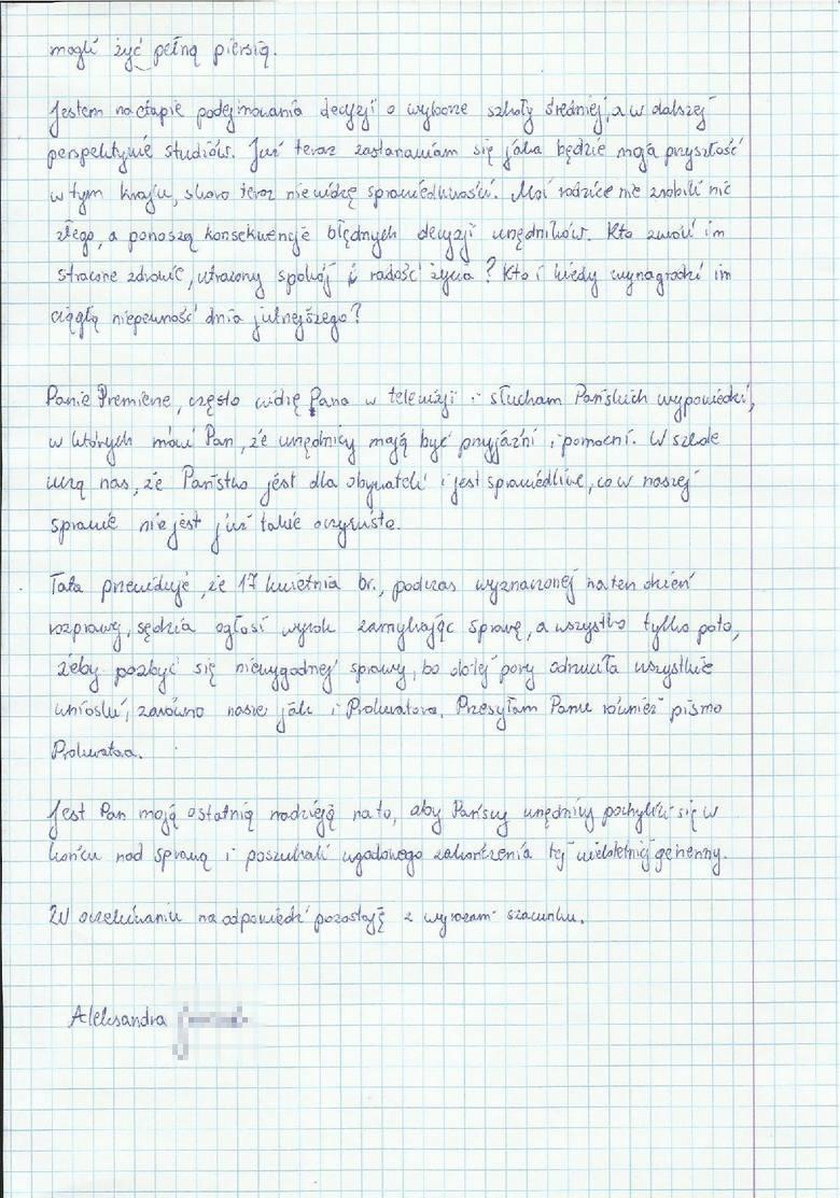 mogli żyć pełną piersią.
Jestem na etapie podejmowania decyzji o wyborze szkoły średniej, a w dalszej
perspektywie studiów. Już teraz zastanawiam się jaka będzie moja przyszłość
w tym kraju, skoro teraz nie widzę sprawiedliwości. Moi rodzice nie zrobili nic
złego, a ponoszą konsekwencje błędnych decyzji urzędników. Kto zwróci im
stracone zdrowie, utracony spokój i radość życia? Kto i kiedy wynagrodzi im
ciągłą niepewność dnia jutrzejszego?
Panie Premierze, często widzę Pana w telewizji i słucham Pańskich wypowiedzi,
w których mówi Pan, że urzędnicy mają być przyjaźni i pomocni. W szkole
uczą nas, że Państwo jest dla obywateli i jest sprawiedliwe, co w naszej
sprawie nie jest już takie oczywiste.
Tata przewiduje, że 17 kwietnia br., podczas wyznaczonej na ten dzień
rozprawy, sędzia ogłosi wyrok zamykając sprawę, a wszystko tylko po to,
żeby pozbyć się niewygodnej sprawy, bo do tej pory odrzuciła wszystkie
wnioski, zarówno nasze jak i Prokuratora. Przesyłam Panu również pismo
Prokuratora.
Jest Pan moją ostatnią nadzieją na to, aby Pańscy urzędnicy pochylili się w
końcu nad sprawą i poszukali ugodowego zakończenia tej wieloletniej gehenny.
W oczekiwaniu na odpowiedź pozostaję z wyrazami szacunku.
Aleksandra